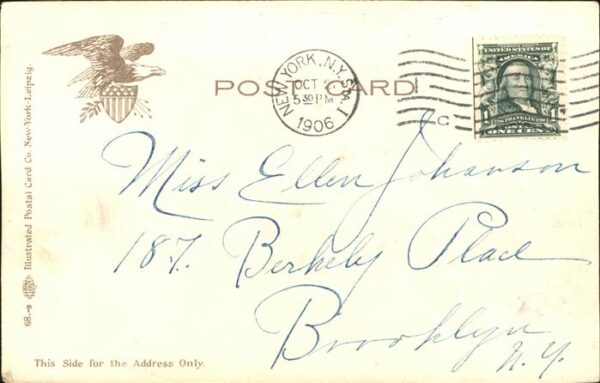 POST CARD
NEW YORK, N.Y. STA. I
OCT
5 30 PM
1906
C
UNITED STATES OF
AMERICA
FRANKLIN
ONE CENT
Miss Ellen Johanson
187. Berkely Place
Brooklyn
N.Y.
This Side for the Address Only.
68.-9 Illustrated Postal Card Co. New-York-Leipzig.